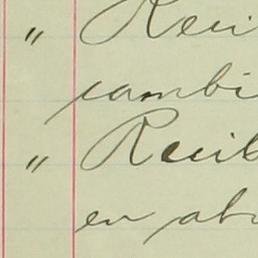 " Reci
cambi
" Recib
en abo